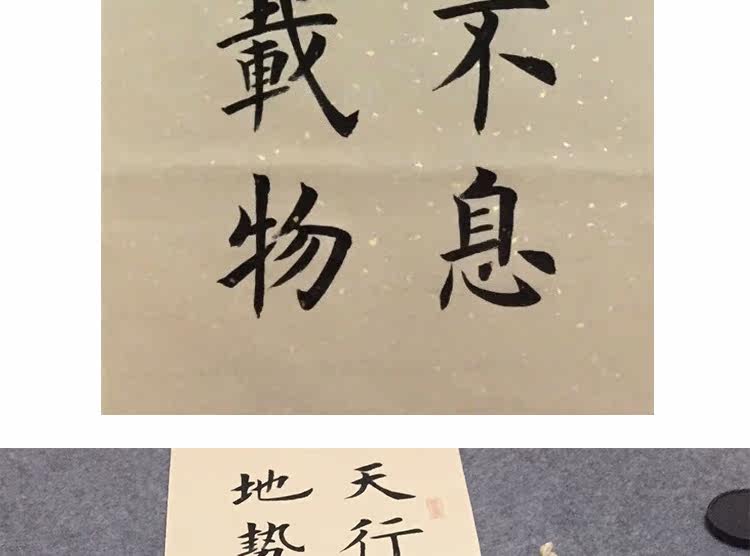 不息
載物
天行
地势